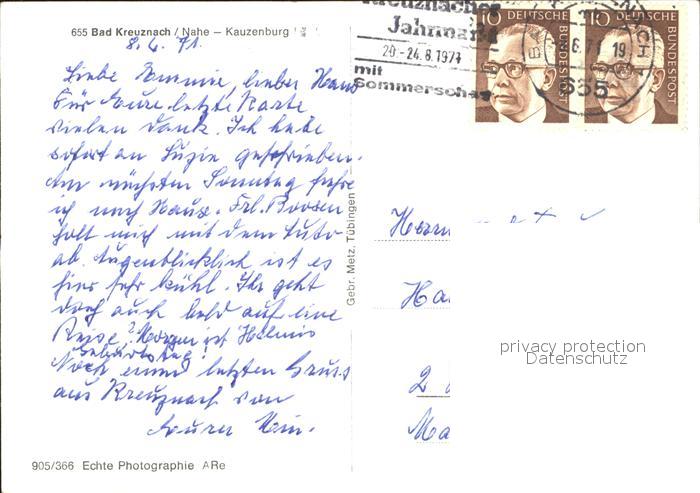 655 Bad Kreuznach / Nahe — Kauzenburg
8.6.71.
Liebe Hannie, lieber Hans
Für Eure letzte Karte
vielen Dank. Ich habe
sofort an Luzie geschrieben.
Am nächsten Sonntag fahre
ich nach Haus. Frl. Boosen
holt mich mit dem Auto
ab. Augenblicklich ist es
hier sehr kühl. Ihr geht
doch auch bald auf eine
Reise? Morgen ist Helmis
Geburtstag!
Noch einen letzten Gruss
aus Kreuznach von
Eurer
905/366 Echte Photographie ARe
Gebr. Metz, Tübingen
Kreuznacher
Jahrmarkt
20.-24.8.1971
mit
Sommerschau
10 DEUTSCHE
BUNDESPOST
10 DEUTSCHE
BUNDESPOST
655
Herrn
Ha
2
Ma
privacy protection
Datenschutz